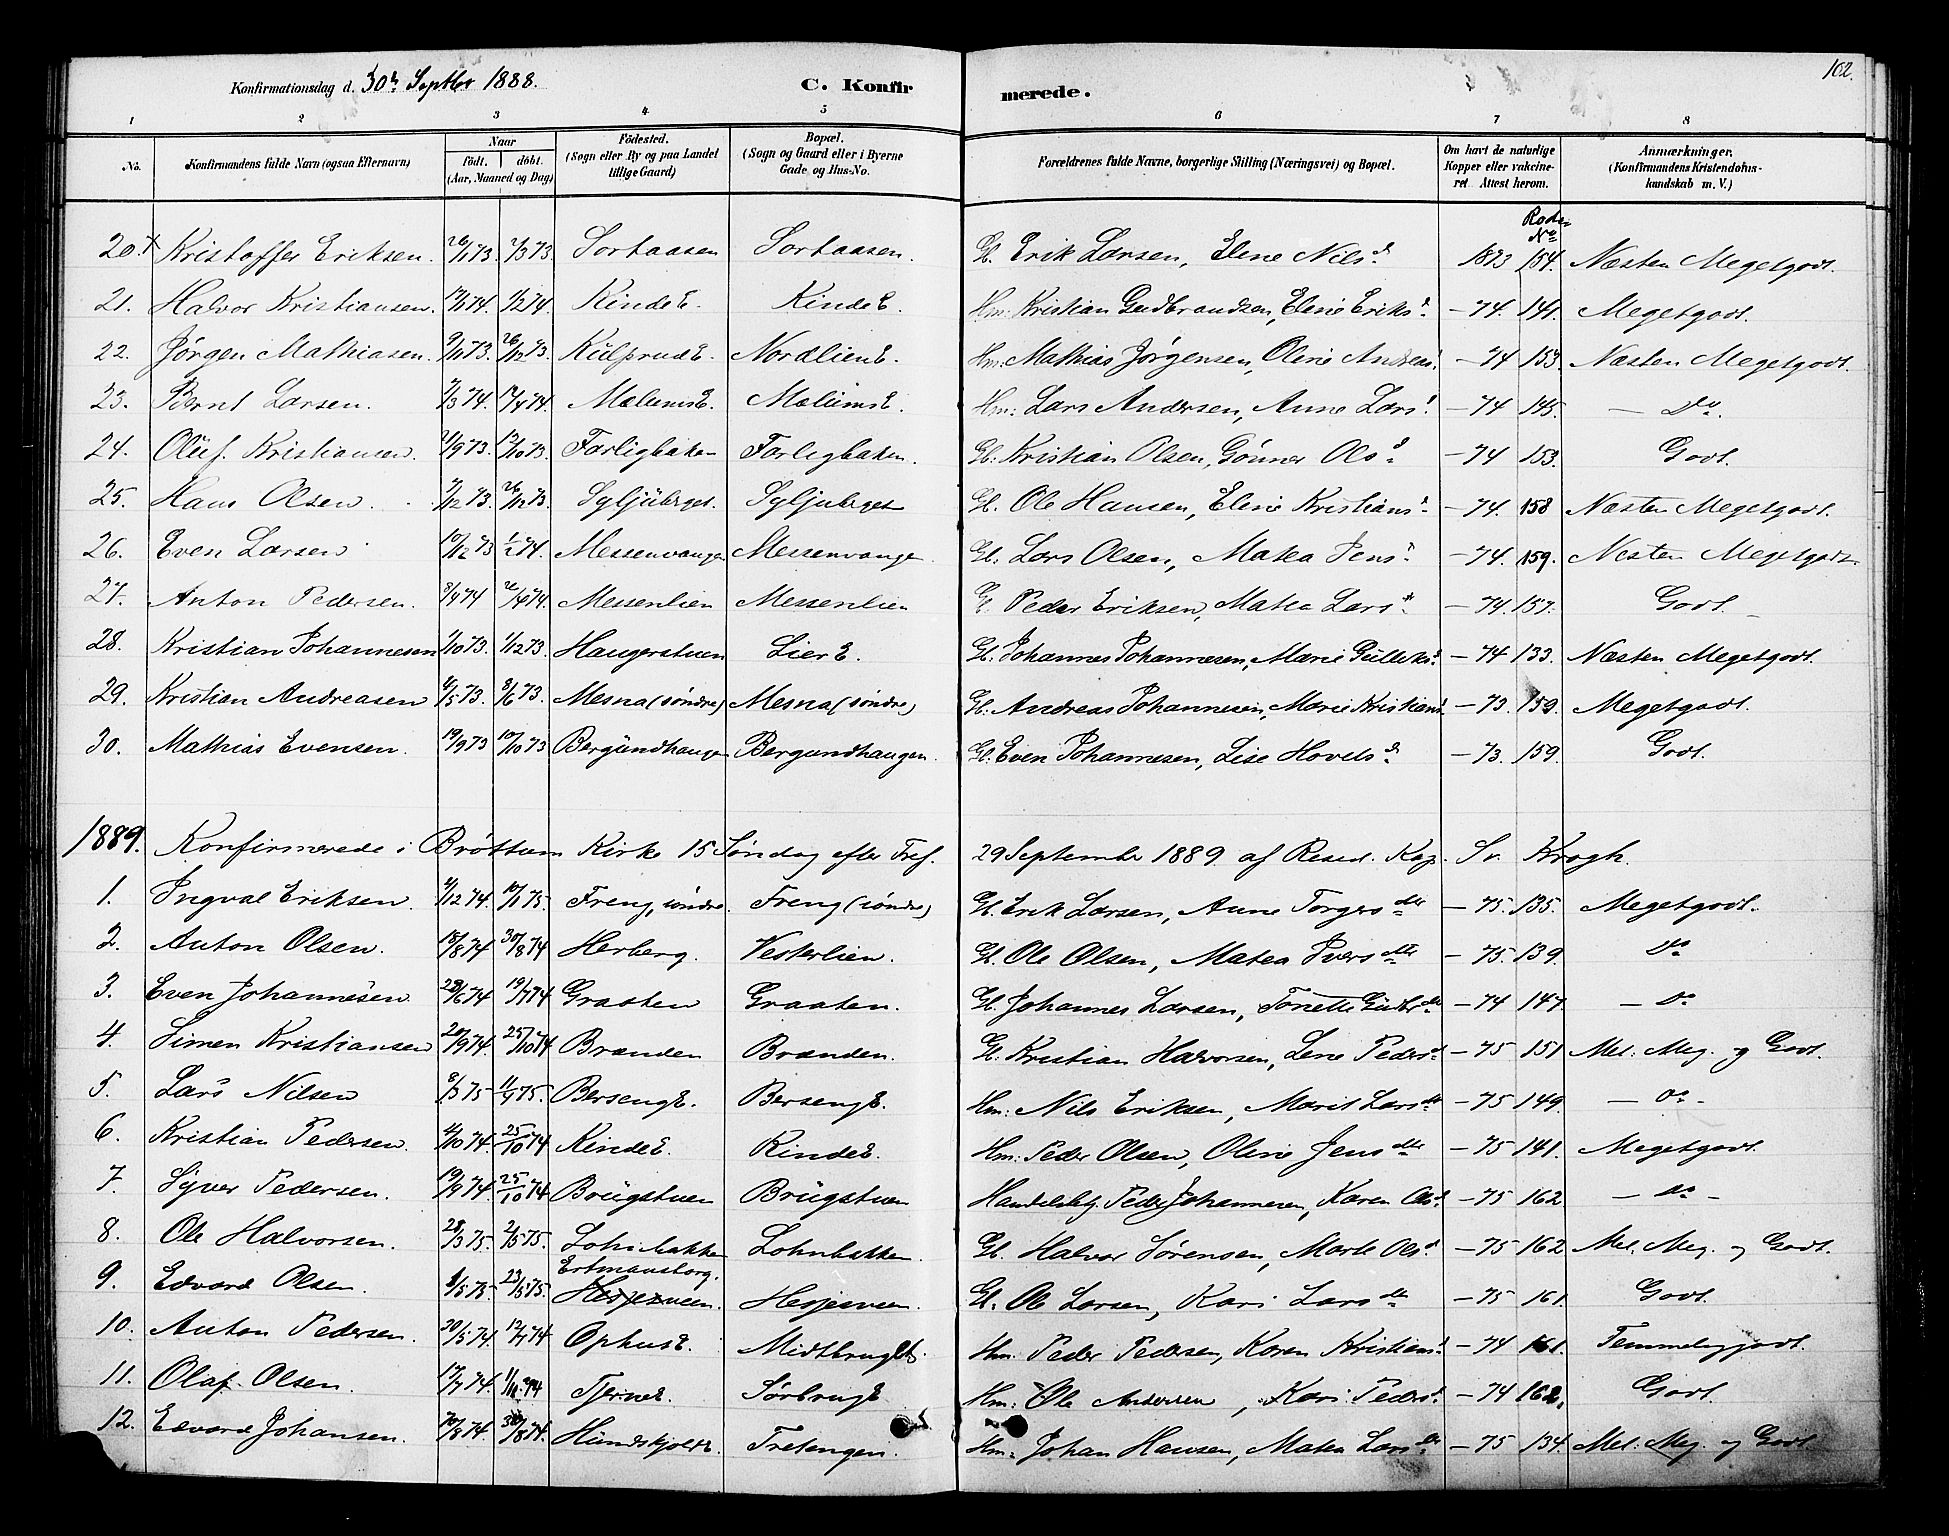 Konfirmationsdag d. 30te Septbr 1888. C. Konfirmerede. 162.
1 2 3 4 5 6 7 8
No. Konfirmandens fulde Navn (ogsaa Efternavn) Naar födt. döbt. (Aar, Maaned og Dag) Födested. (Sogn eller By og paa Landet tillige Gaard) Bopæl. (Sogn og Gaard eller i Byerne Gade og Hus-No. Forældrenes fulde Navne, borgerlige Stilling (Næringsvei) og Bopæl. Om havt de naturlige Kopper eller vakcineret. Attest herom. Anmærkninger. (Konfirmandens Kristendomskundskab m. V.)
Rode No
20. Kristoffer Eriksen. 26/1 73 2/3 73 Sortaasen Sortaasen. Gl. Erik Larsen, Elene Nilsd 1873 154. Næsten Megetgodt.
21. Halvor Kristiansen. 17/1 74. 1/2 74 KindeE. KindeE. Hm: Kristian Gudbrandsen, Elene Eriksd – 74. 141. Megetgodt.
22. Jørgen Mathiasen. 9/11 73. 26/12 73. KulsrudE. NordlienE. Hm: Mathias Jørgensen, Oline Andreasd – 74 153. Næsten Megetgodt.
23. Bernt Larsen. 7/3 74. 19/4 74. MælumsE. MælumsE. Hm: Lars Andersen, Anne Larsd – 74 145. – Do.
24. Oluf Kristiansen. 21/9 73. 12/10 73. Farligbaken Farligbaken. Gl. Kristian Olsen, Gønner Olsd – 74 153. Godt.
25. Hans Olsen. 7/12 73. 26/12 73. Syljuberget. Syljuberget Gl. Ole Hansen, Elene Kristiansd – 74. 158 Næsten Megetgodt.
26. Even Larsen 10/12 73 1/2 74. Messenvangen Messenvangen Gl. Lars Olsen, Matea Jensd – 74. 159. Næsten Megetgodt.
27. Anton Pedersen. 8/4 74 26/4 74. Messenlien Messenlien G. Peder Eriksen, Matea Larsd – 74. 157. Godt.
28. Kristian Johannesen 1/10 73. 1/12 73. Haugerstuen LierE. Gl. Johannes Johannesen, Marie Gulliksd – 74 133. Næsten Megetgodt.
29. Kristian Andreasen 4/5 73. 8/6 73. Mesna (søndre) Mesna (søndre) Gl. Andreas Johannesen, Marie Kristiansd – 73. 159. Megetgodt.
30. Mathias Evensen. 19/9 73 10/10 73 Bergundhaugen Bergundhaugen. Gl. Even Johannesen, Lise Hovelsd – 73. 159. Godt.
1889. Konfirmerede i Brøttum Kirke 15 Søndag efter Tref. 29 September 1889 af Resid. Kap. Sv. Krogh.
1. Ingval Eriksen. 4/12 74. 10/1 75. Freng, søndre. Freng (søndre) Gl. Erik Larsen, Anne Torgersdtr – 75. 135. Megetgodt.
2. Anton Olsen. 18/8 74 30/8 74 Herberg. Vesterlien. Gl. Ole Olsen, Matea Iversdtr – 75. 139. Do
3. Even Johannesen 28/6 74 19/7 74 Graaten Graaten. Gl. Johannes Larsen, Tonette Gudbrd – 74 147. – Do
4. Simen Kristiansen 20/9 74. 25/10 74 Brænden Brænden. Gl. Kristian Halvorsen, Lene Pedersd – 75 151 Mel. Meg. og Godt.
5. Lars Nilsen 8/3 75 11/4 75. BersengE. BersengE. Hm: Nils Eriksen, Marit Larsdtr – 75 149. – Do –
6. Kristian Pedersen. 4/10 74. 25/10 74 KindeE. KindeE. Hm: Peder Olsen, Oline Jensdtr – 75 141. Megetgodt.
7. Syver Pedersen. 19/9 74. 25/10 74 Brugstuen Brugstuen Handelsbtj. Peder Johannesen, Karen Olsd – 75 162 – Do –
8. Ole Halvorsen. 28/3 75. 2/5 75. Lohnbakken Lohnbakken Gl. Halvor Sørensen, Marte Olsd – 75 162 Mel. Meg. og Godt.
9. Edvard Olsen. 1/5 75. 23/5 75. Ertmansborg. Hesjesveen. Hesjesveen. Gl. Ole Larsen, Kari Larsdtr – 75 161. Godt.
10. Anton Pedersen. 20/5 74. 12/7 74 OphusE. Midtbrugets. Hm. Peder Pedersen, Karen Kristiansd – 74 161. Temmeliggodt.
11. Olaf Olsen. 17/7 74. TjerneE. SørbrugE Hm: Ole Andersen, Kari Pedersd – 74 162. Godt.
12. Edvard Johansen. 20/8 74. 30/8 74. HundskjoldE. Tretengen. Hm. Johan Hansen, Matea Larsdtr – 75 134. Mel. Meg. og Godt